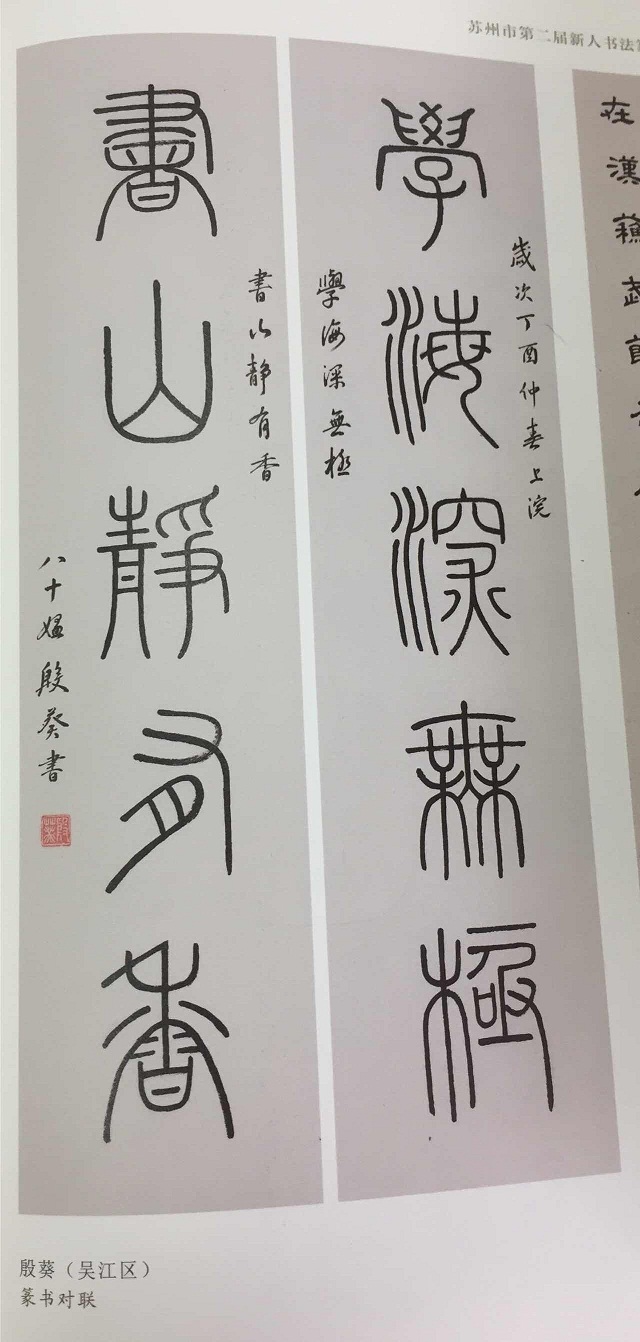 苏州市第二届新人书法
在漢蘇武節
歲次丁酉仲春上浣
學海深無極
學海深無極
書山靜有香
書山靜有香
八十媼殷葵書
殷葵
殷葵（吴江区）
篆书对联